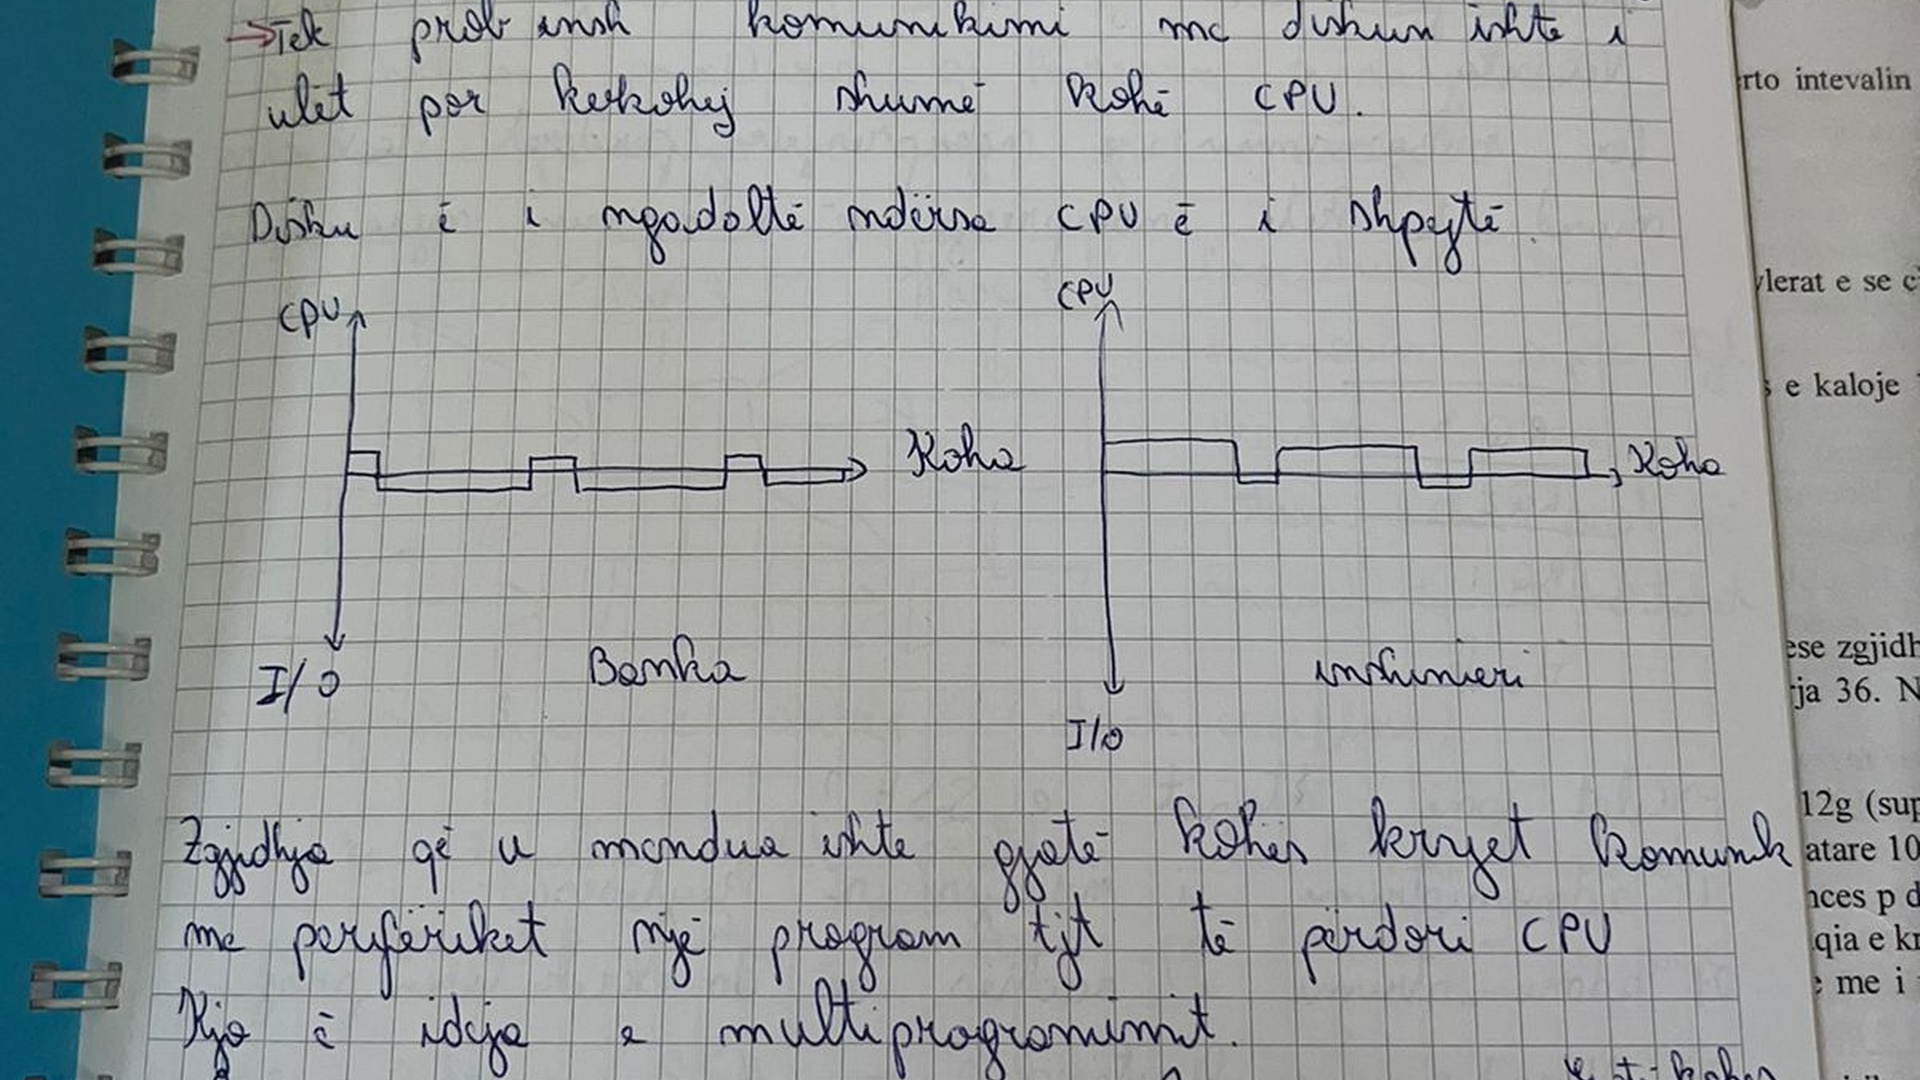 →Tek prob insh komunikimi me diskun ishte i
ulët por kërkohej shumë kohë CPU.
Disku ë i ngadaltë ndërsa CPU ë i shpejtë.
CPU
CPU
Koha
Koha
I/O
Banka
inshinieri
I/O
Zgjidhja që u mendua ishte gjatë kohës kryet komunik
me periferiket një program tjt të përdori CPU
Kjo ë ideja e multiprogramimit.
rto intevalin
vlerat e se
e kaloje
ese zgjidh
rja 36. N
12g (sup
atare 10
nces p d
qia e kr
me i